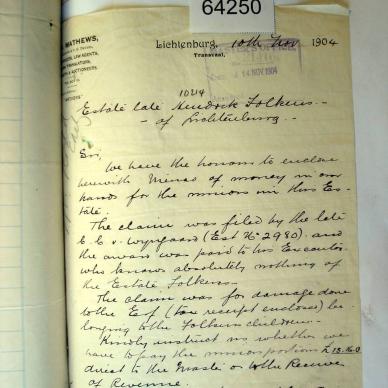 64250
MATHEWS,
LAW AGENTS,
& AUCTIONEERS
Lichtenburg, 10th Nov 1904
Transvaal,
14 NOV 1904
1024
Estate late Hendrik Folkers
of Lichtenburg.
Sir,
We have the honour to enclose
herewith of money in our
hands for the minors in this Es-
tate.
The claim was filed by the late
C. C. v. Wyngaard (Est No 2980) and
the award was paid to his Executor
who knows absolutely nothing of
the Estate Folkers.
The claim was for damage done
to the Erf (tax receipt enclosed) be-
longing to the Folkers children.
Kindly instruct us whether we
have to pay the minors portions £13.16.0
direct to the Master or to the Receiver
of Revenue.